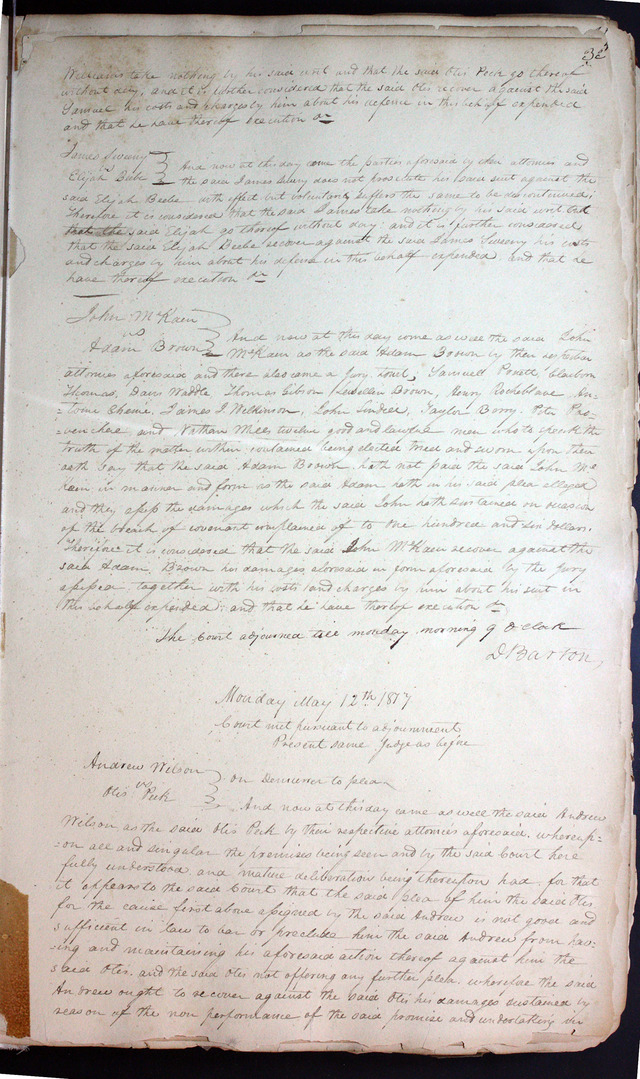 Williams take nothing by his said writ and that the said Otis Peek go thereof
without day, and it is further considered that the said Otis recover against the said
Samuel his costs and charges by him about his defense in this behalf expended
and that he have thereof execution &c
James Sweny
vs
Elijah Beebe
And now at this day come the parties aforesaid by their attornies and
the said James Sweny does not prosecute his said suit against the
said Elijah Beebe with effect but voluntary suffers the same to be discontinued;
Therefore it is considered that the said James take nothing by his said writ but
that the said Elijah go thereof without day: and it is further considered
that the said Elijah Beebe recover against the said James Sweeny his costs
and charges by him about his defense in this behalf expended and that he
have thereof execution &c
John McKaen
vs
Adam Brown
And now at this day come as well the said John
McKaen as the said Adam Brown by their respective
attornies aforesaid and there also came a Jury towit; Samuel Claiborn
Thomas, Davis Waddle Thomas Gibson Lewellen Brown, Henry Rocheblave An-
=toine Chenie, James J. Wilkinson, John Lindell, Taylor Berry. Peter Pro-
=venchere, and Nathan Mills twelve good and lawful men who to speak the
truth of the matter within contained being elected tried and sworn upon their
oath say that the said Adam Brown hath not paid the said John Mc
Kaen in manner and form as the said Adam hath in his said plea alleged
and they assess the damages which the said John hath sustained on occasion
of the breach of covenant complained of to one hundred and dollars.
Therefore it is considered that the said John McKaen recover against the
said Adam Brown his damages aforesaid in form aforesaid by the Jury
assessed together with his costs and charges by him about his suit in
this behalf expended: and that he have thereof execution &c
The Court adjourned till monday morning 9 O Clock
D Barton,
Monday May 12th 1817
Court met pursuant to adjournment
Present same Judge as before
Andrew Wilson
vs
Otis Peek
on Demurrer to plea
And now at this day came as well the said Andrew
Wilson as the said Otis Peek by their respective attornies aforesaid. whereup=
=on all and singular the premises being seen and by the said Court here
fully understood and mature deliberation being thereupon had, for that
it appears to the said Court that the said plea of him the said Otis
for the cause first above assigned by the said Andrew is not good and
sufficient in law to bar or preclude him the said Andrew from hav-
=ing and maintaining his aforesaid action thereof against him the
said Otis. and the said Otis not offering any further plea. wherefore the said
Andrew ought to recover against the said Otis his damages sustained by
reason of the non performance of the said promise and undertaking in